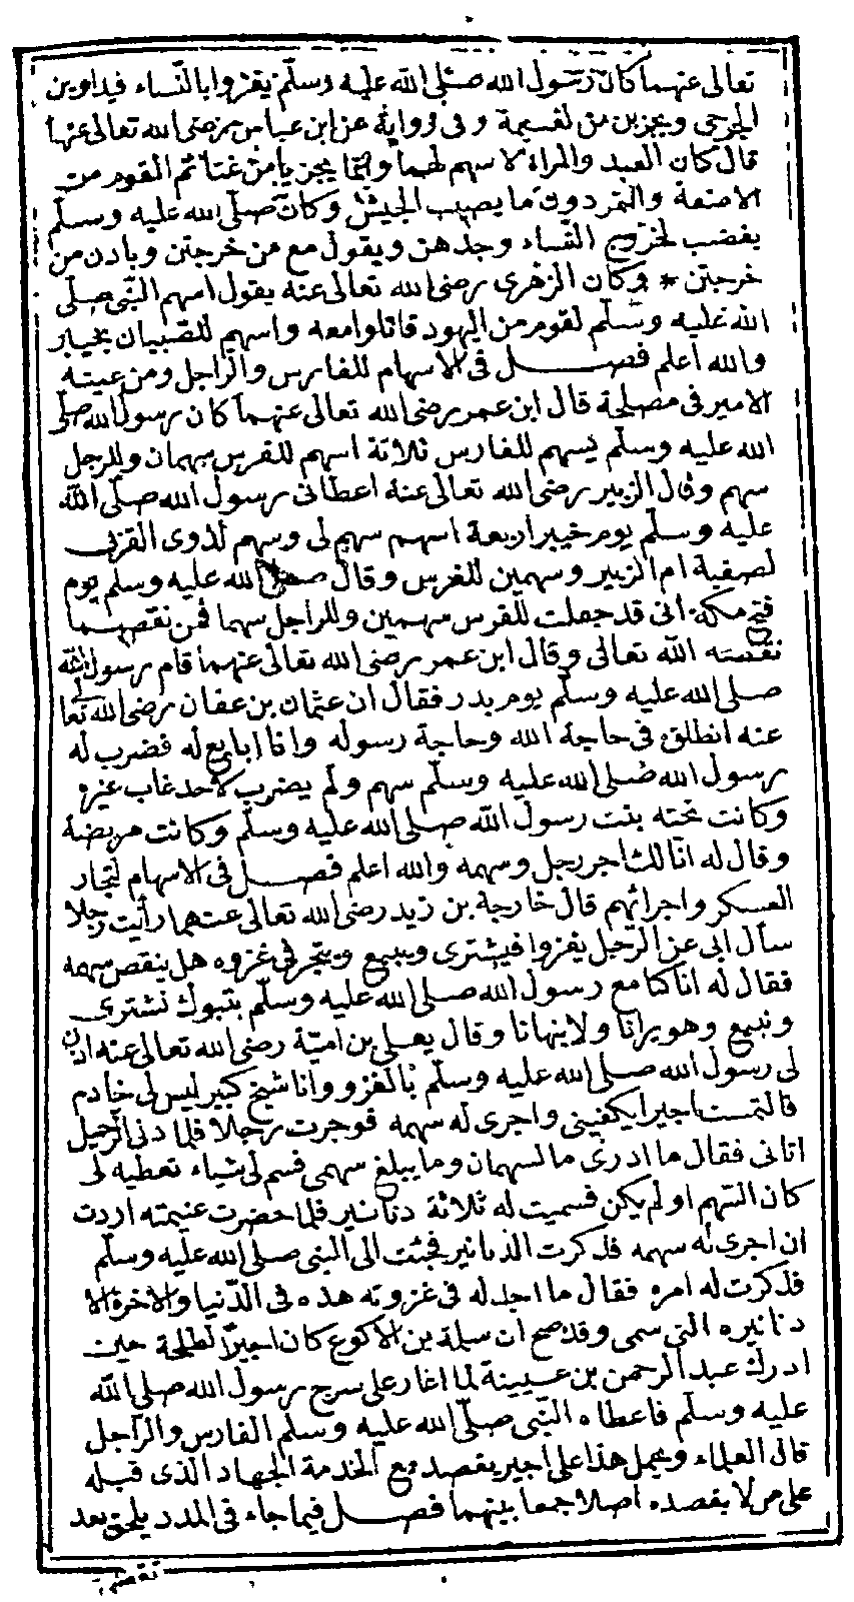 تعالى عنهما كان رسول الله صلى الله عليه وسلم يغزوا بالنساء فيداوين
الجرحى ويجزين من الغنيمة وفى رواية عن ابن عباس رضى الله تعالى عنهما
قال كان العبد والمراة لا سهم لهما وانما يجزيا من غنائم القوم من
الامتعة والخردون ما يصيب الجيش وكان صلى الله عليه وسلم
يغضب لخروج النساء وحدهن ويقول مع من خرجتن وباذن من
خرجتن * وكان الزهرى رضى الله تعالى عنه يقول اسهم النبى صلى
الله عليه وسلم لقوم من اليهود قاتلوا معه واسهم للصبيان بخيبر
والله اعلم فصل فى الاسهام للفارس والراجل ومن عيبته
الامير فى مصلحة قال ابن عمر رضى الله تعالى عنهما كان رسول الله صلى
الله عليه وسلم يسهم للفارس ثلاثة اسهم للفرس سهمان وللرجل
سهم وقال الزبير رضى الله تعالى عنه اعطانى رسول الله صلى الله
عليه وسلم يوم خيبر اربعة اسهم سهم لى وسهم لذوى القربى
لصفية ام الزبير وسهمين للفرس وقال صلى الله عليه وسلم يوم
فتح مكة انى قد جعلت للفرس سهمين وللراجل سهما فمن نقصهما
نقصه الله تعالى وقال ابن عمر رضى الله تعالى عنهما قام رسول الله
صلى الله عليه وسلم يوم بدر فقال ان عثمان بن عفان رضى الله تعالى
عنه انطلق فى حاجة الله وحاجة رسوله وانا ابايع له فضرب له
رسول الله صلى الله عليه وسلم سهم ولم يضرب لاحد غاب غيره
وكانت تحته بنت رسول الله صلى الله عليه وسلم وكانت مريضة
وقال له ان لك اجر رجل وسهمه والله اعلم فصل فى الاسهام لتجار
العسكر واجرائهم قال خارجة بن زيد رضى الله تعالى عنهما رأيت رجلا
سأل ابى عن الرجل يغزوا فيشترى ويبيع ويتجر فى غزوه هل ينقص سهمه
فقال له انا كنا مع رسول الله صلى الله عليه وسلم بتبوك نشترى
ونبيع وهو يرانا ولا ينهانا وقال يعلى بن امية رضى الله تعالى عنه اذن
لى رسول الله صلى الله عليه وسلم بالغزو وانا شيخ كبير ليس لى خادم
فالتمست اجيرا يكفينى واجرى له سهمه فوجرت رجلا فلما دنى الرحيل
اتانى فقال ما ادرى ما السهمان وما يبلغ سهمى فسم لى شياء تعطيه لى
كان السهم او لم يكن فسميت له ثلاثة دنانير فلما حضرت غنيمته اردت
ان اجرى له سهمه فذكرت الدنانير فجئت الى النبى صلى الله عليه وسلم
فذكرت له امره فقال ما اجد له فى غزوته هذه فى الدنيا والاخرة الا
دنانيره التى سمى وقد صح ان سلمة بن الاكوع كان اجيرا لطلحة حين
ادرك عبد الرحمن بن عيينة لما اغار على سرح رسول الله صلى الله
عليه وسلم فاعطاه النبى صلى الله عليه وسلم الفارس والراجل
قال العلماء ويحمل هذا على اجير يقصد مع الخدمة الجهاد الذى قبله
على من لا يقصده اصلا جمعا بينهما فصل فيما جاء فى المدد يلحق بعد